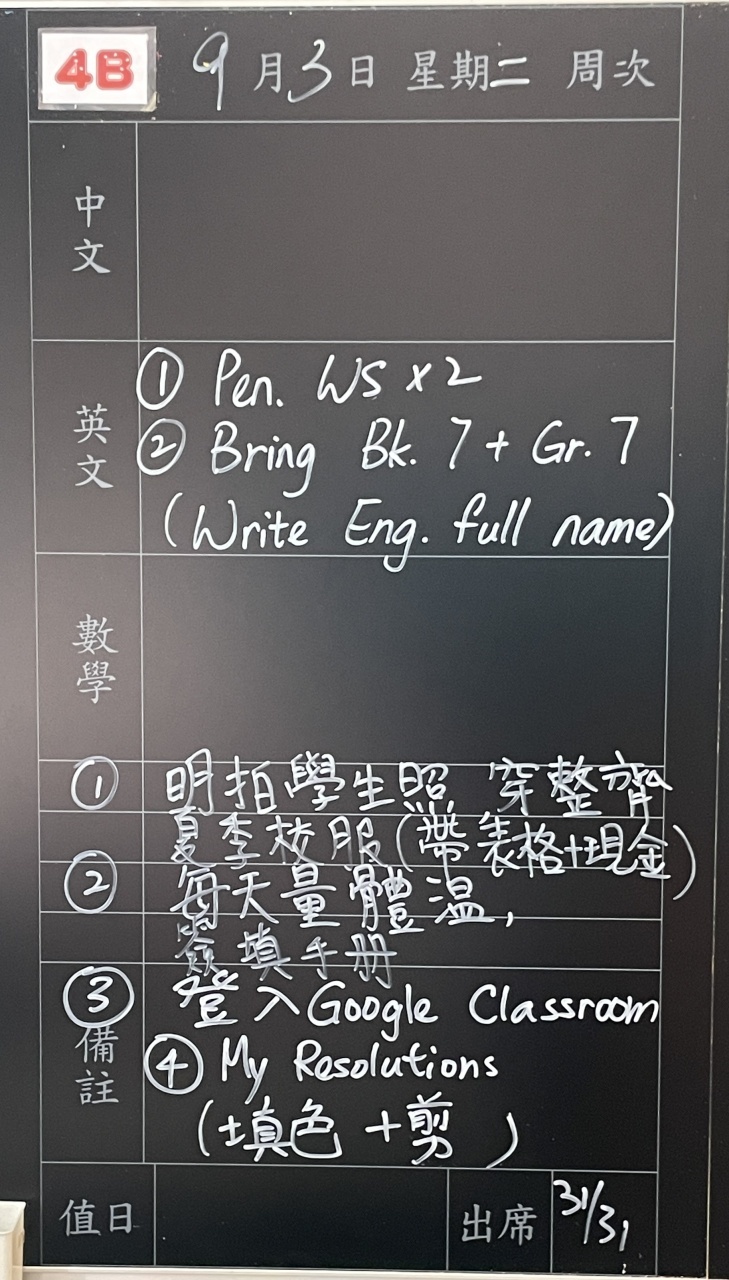 4B 9月3日 星期二 周次
中文
英文
① Pen. WS x 2
② Bring Bk. 7 + Gr. 7
(Write Eng. full name)
數學
① 明拍學生照 穿整齊
夏季校服(帶表格+現金)
② 每天量體溫,
簽填手冊
③ 登入Google Classroom
備註
④ My Resolutions
(填色+剪)
值日 出席 31/31